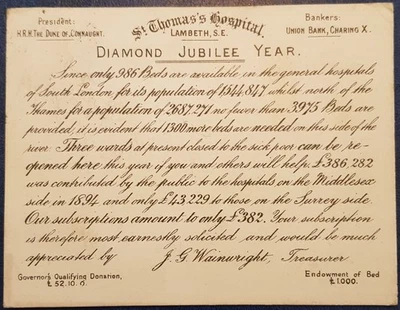 President:
H.R.H. THE DUKE OF CONNAUGHT.
St Thomas's Hospital,
LAMBETH, S.E.
Bankers:
UNION BANK, CHARING X.
DIAMOND JUBILEE YEAR.
Since only 986 Beds are available in the general hospitals
of South London for its population of 1544,847 whilst north of the
Thames for a population of 2687,271 no fewer than 3975 Beds are
provided, it is evident that 1300 more beds are needed on this side of the
river Three wards at present closed to the sick poor can be, re-
opened here this year if you and others will help. £386,282
was contributed by the public to the hospitals on the Middlesex
side in 1894 and only £43,229 to those on the Surrey side.
Our subscriptions amount to only £382. Your subscription
is therefore most earnestly solicited and would be much
appreciated by J. G. Wainwright, Treasurer
Governor's Qualifying Donation,
£52.10.0.
Endowment of Bed
£1,000.